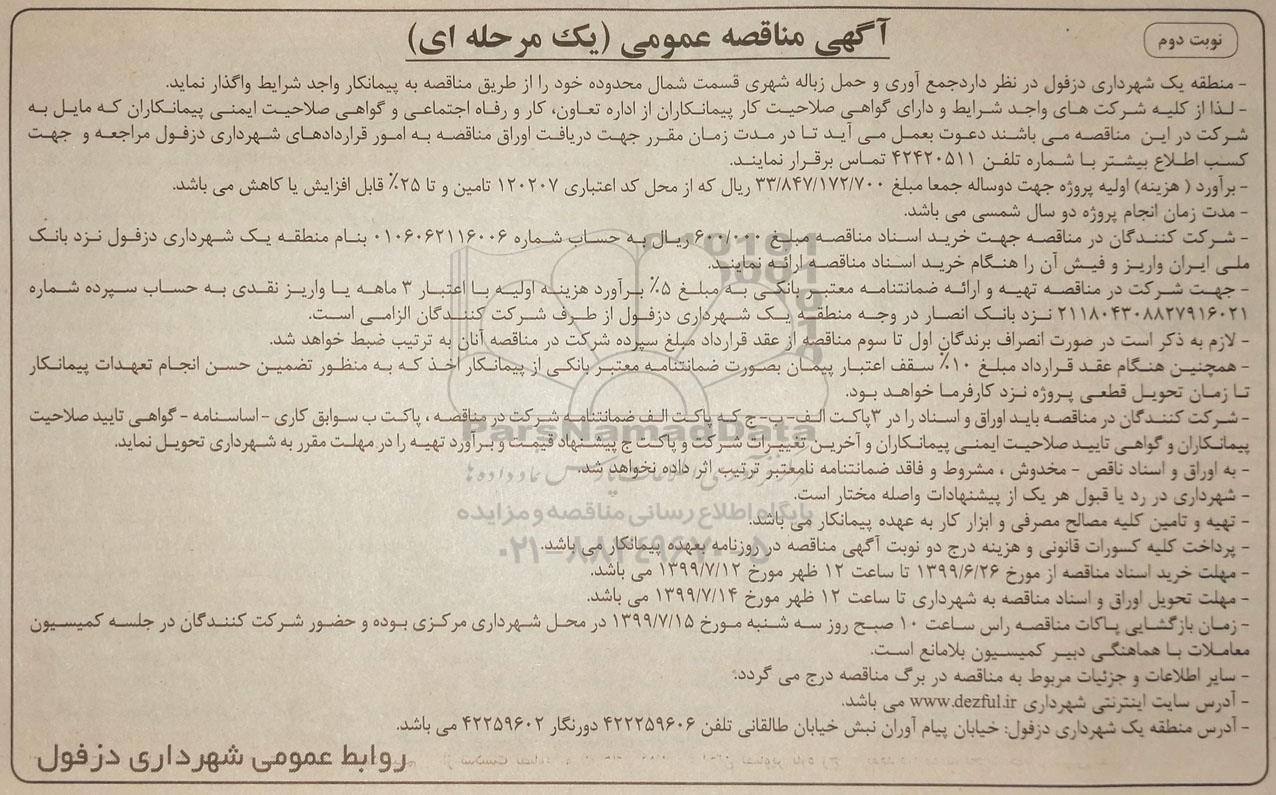 نوبت دوم
آگهی مناقصه عمومی (یک مرحله ای)
- منطقه یک شهرداری دزفول در نظر داردجمع آوری و حمل زباله شهری قسمت شمال محدوده خود را از طریق مناقصه به پیمانکار واجد شرایط واگذار نماید.
- لذا از کلیه شرکت های واجد شرایط و دارای گواهی صلاحیت کار پیمانکاران از اداره تعاون، کار و رفاه اجتماعی و گواهی صلاحیت ایمنی پیمانکاران که مایل به
شرکت در این مناقصه می باشند دعوت بعمل می آید تا در مدت زمان مقرر جهت دریافت اوراق مناقصه به امور قراردادهای شهرداری دزفول مراجعه و جهت
کسب اطلاع بیشتر با شماره تلفن ۴۲۴۲۰۵۱۱ تماس برقرار نمایند.
- برآورد ( هزینه) اولیه پروژه جهت دوساله جمعا مبلغ ۳۳/۸۴۷/۱۷۲/۷۰۰ ریال که از محل کد اعتباری ۱۲۰۲۰۷ تامین و تا ۲۵٪ قابل افزایش یا کاهش می باشد.
- مدت زمان انجام پروژه دو سال شمسی می باشد.
- شرکت کنندگان در مناقصه جهت خرید اسناد مناقصه مبلغ ۶۰۰/۰۰۰ ریال به حساب شماره ۰۱۰۶۰۶۲۱۱۶۰۰۶ بنام منطقه یک شهرداری دزفول نزد بانک
ملی ایران واریز و فیش آن را هنگام خرید اسناد مناقصه ارائه نمایند.
- جهت شرکت در مناقصه تهیه و ارائه ضمانتنامه معتبر بانکی به مبلغ ۵٪ برآورد هزینه اولیه با اعتبار ۳ ماهه یا واریز نقدی به حساب سپرده شماره
۲۱۱۸۰۴۳۰۸۸۲۷۹۱۶۰۲۱ نزد بانک انصار در وجه منطقه یک شهرداری دزفول از طرف شرکت کنندگان الزامی است.
- لازم به ذکر است در صورت انصراف برندگان اول تا سوم مناقصه از عقد قرارداد مبلغ سپرده شرکت در مناقصه آنان به ترتیب ضبط خواهد شد.
- همچنین هنگام عقد قرارداد مبلغ ۱۰٪ سقف اعتبار پیمان بصورت ضمانتنامه معتبر بانکی از پیمانکار اخذ که به منظور تضمین حسن انجام تعهدات پیمانکار
تا زمان تحویل قطعی پروژه نزد کارفرما خواهد بود.
- شرکت کنندگان در مناقصه باید اوراق و اسناد را در ۳پاکت الف- ب- ج که پاکت الف ضمانتنامه شرکت در مناقصه ، پاکت ب سوابق کاری - اساسنامه - گواهی تایید صلاحیت
پیمانکاران و گواهی تایید صلاحیت ایمنی پیمانکاران و آخرین تغییرات شرکت و پاکت ج پیشنهاد قیمت و برآورد تهیه را در مهلت مقرر به شهرداری تحویل نماید.
- به اوراق و اسناد ناقص - مخدوش ، مشروط و فاقد ضمانتنامه نامعتبر ترتیب اثر داده نخواهد شد.
- شهرداری در رد یا قبول هر یک از پیشنهادات واصله مختار است.
- تهیه و تامین کلیه مصالح مصرفی و ابزار کار به عهده پیمانکار می باشد.
- پرداخت کلیه کسورات قانونی و هزینه درج دو نوبت آگهی مناقصه در روزنامه بعهده پیمانکار می باشد.
- مهلت خرید اسناد مناقصه از مورخ ۱۳۹۹/۶/۲۶ تا ساعت ۱۲ ظهر مورخ ۱۳۹۹/۷/۱۲ می باشد.
- مهلت تحویل اوراق و اسناد مناقصه به شهرداری تا ساعت ۱۲ ظهر مورخ ۱۳۹۹/۷/۱۴ می باشد.
- زمان بازگشایی پاکات مناقصه راس ساعت ۱۰ صبح روز سه شنبه مورخ ۱۳۹۹/۷/۱۵ در محل شهرداری مرکزی بوده و حضور شرکت کنندگان در جلسه کمیسیون
معاملات با هماهنگی دبیر کمیسیون بلامانع است.
- سایر اطلاعات و جزئیات مربوط به مناقصه در برگ مناقصه درج می گردد.
- آدرس سایت اینترنتی شهرداری www.dezful.ir می باشد.
- آدرس منطقه یک شهرداری دزفول: خیابان پیام آوران نبش خیابان طالقانی تلفن ۴۲۲۲۵۹۶۰۶ دورنگار ۴۲۲۵۹۶۰۲ می باشد.
روابط عمومی شهرداری دزفول
ParsNamadData
پایگاه اطلاع رسانی مناقصه و مزایده